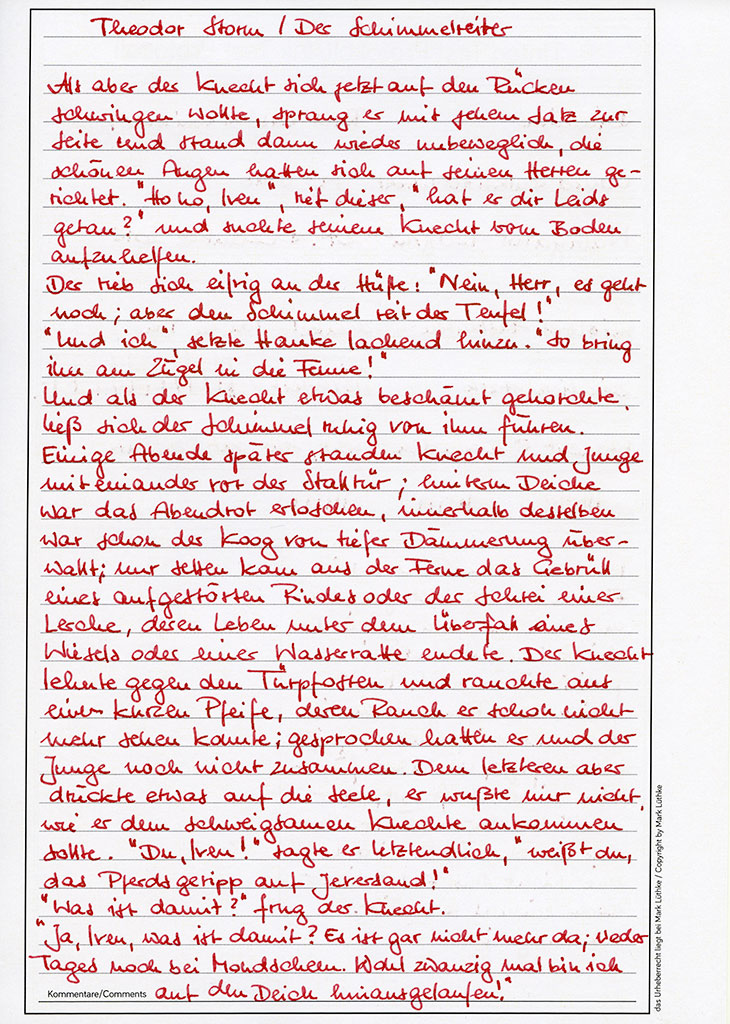 Theodor Storm / Der Schimmelreiter
Als aber der Knecht sich jetzt auf den Rücken
schwingen wollte, sprang er mit jehem Satz zur
Seite und stand dann wieder unbeweglich, die
schönen Augen hatten sich auf seinen Herren ge-
richtet. "Ho ho, Iven", rief dieser, "hat er dir Leids
getan?" und suchte seinem Knecht vom Boden
aufzuhelfen.
Der rieb sich eifrig an der Hüfte: "Nein, Herr, es geht
noch; aber den Schimmel reit der Teufel!"
"Und ich", setzte Hauke lachend hinzu. "So bring
ihn am Zügel in die Fenne!"
Und als der Knecht etwas beschämt gehorchte,
ließ sich der Schimmel ruhig von ihm führen.
Einige Abende später standen Knecht und Junge
miteinander vor der Stalltür; hinterm Deiche
war das Abendrot erloschen, innerhalb desselben
war schon der Koog von tiefer Dämmerung über-
wallt; nur selten kam aus der Ferne das Gebrüll
eines aufgestörten Rindes oder der Schrei einer
Lerche, deren Leben unter dem Überfall eines
Wiesels oder einer Wasserratte endete. Der Knecht
lehnte gegen den Türpfosten und rauchte aus
einer kurzen Pfeife, deren Rauch er schon nicht
mehr sehen konnte; gesprochen hatten er und der
Junge noch nicht zusammen. Dem letzteren aber
drückte etwas auf die Seele, er wußte nur nicht,
wie er dem schweigsamen Knechte ankommen
sollte. "Du, Iven!" sagte er letztendlich, "weißt du,
das Pferdsgeripp auf Jeversand!"
"Was ist damit?" frug der Knecht.
"Ja, Iven, was ist damit? Es ist gar nicht mehr da; weder
Tages noch bei Mondschein. Wohl zwanzig mal bin ich
Kommentare/Comments auf den Deich hinausgelaufen!"
das Urheberrecht liegt bei Mark Lüthke / Copyright by Mark Lüthke